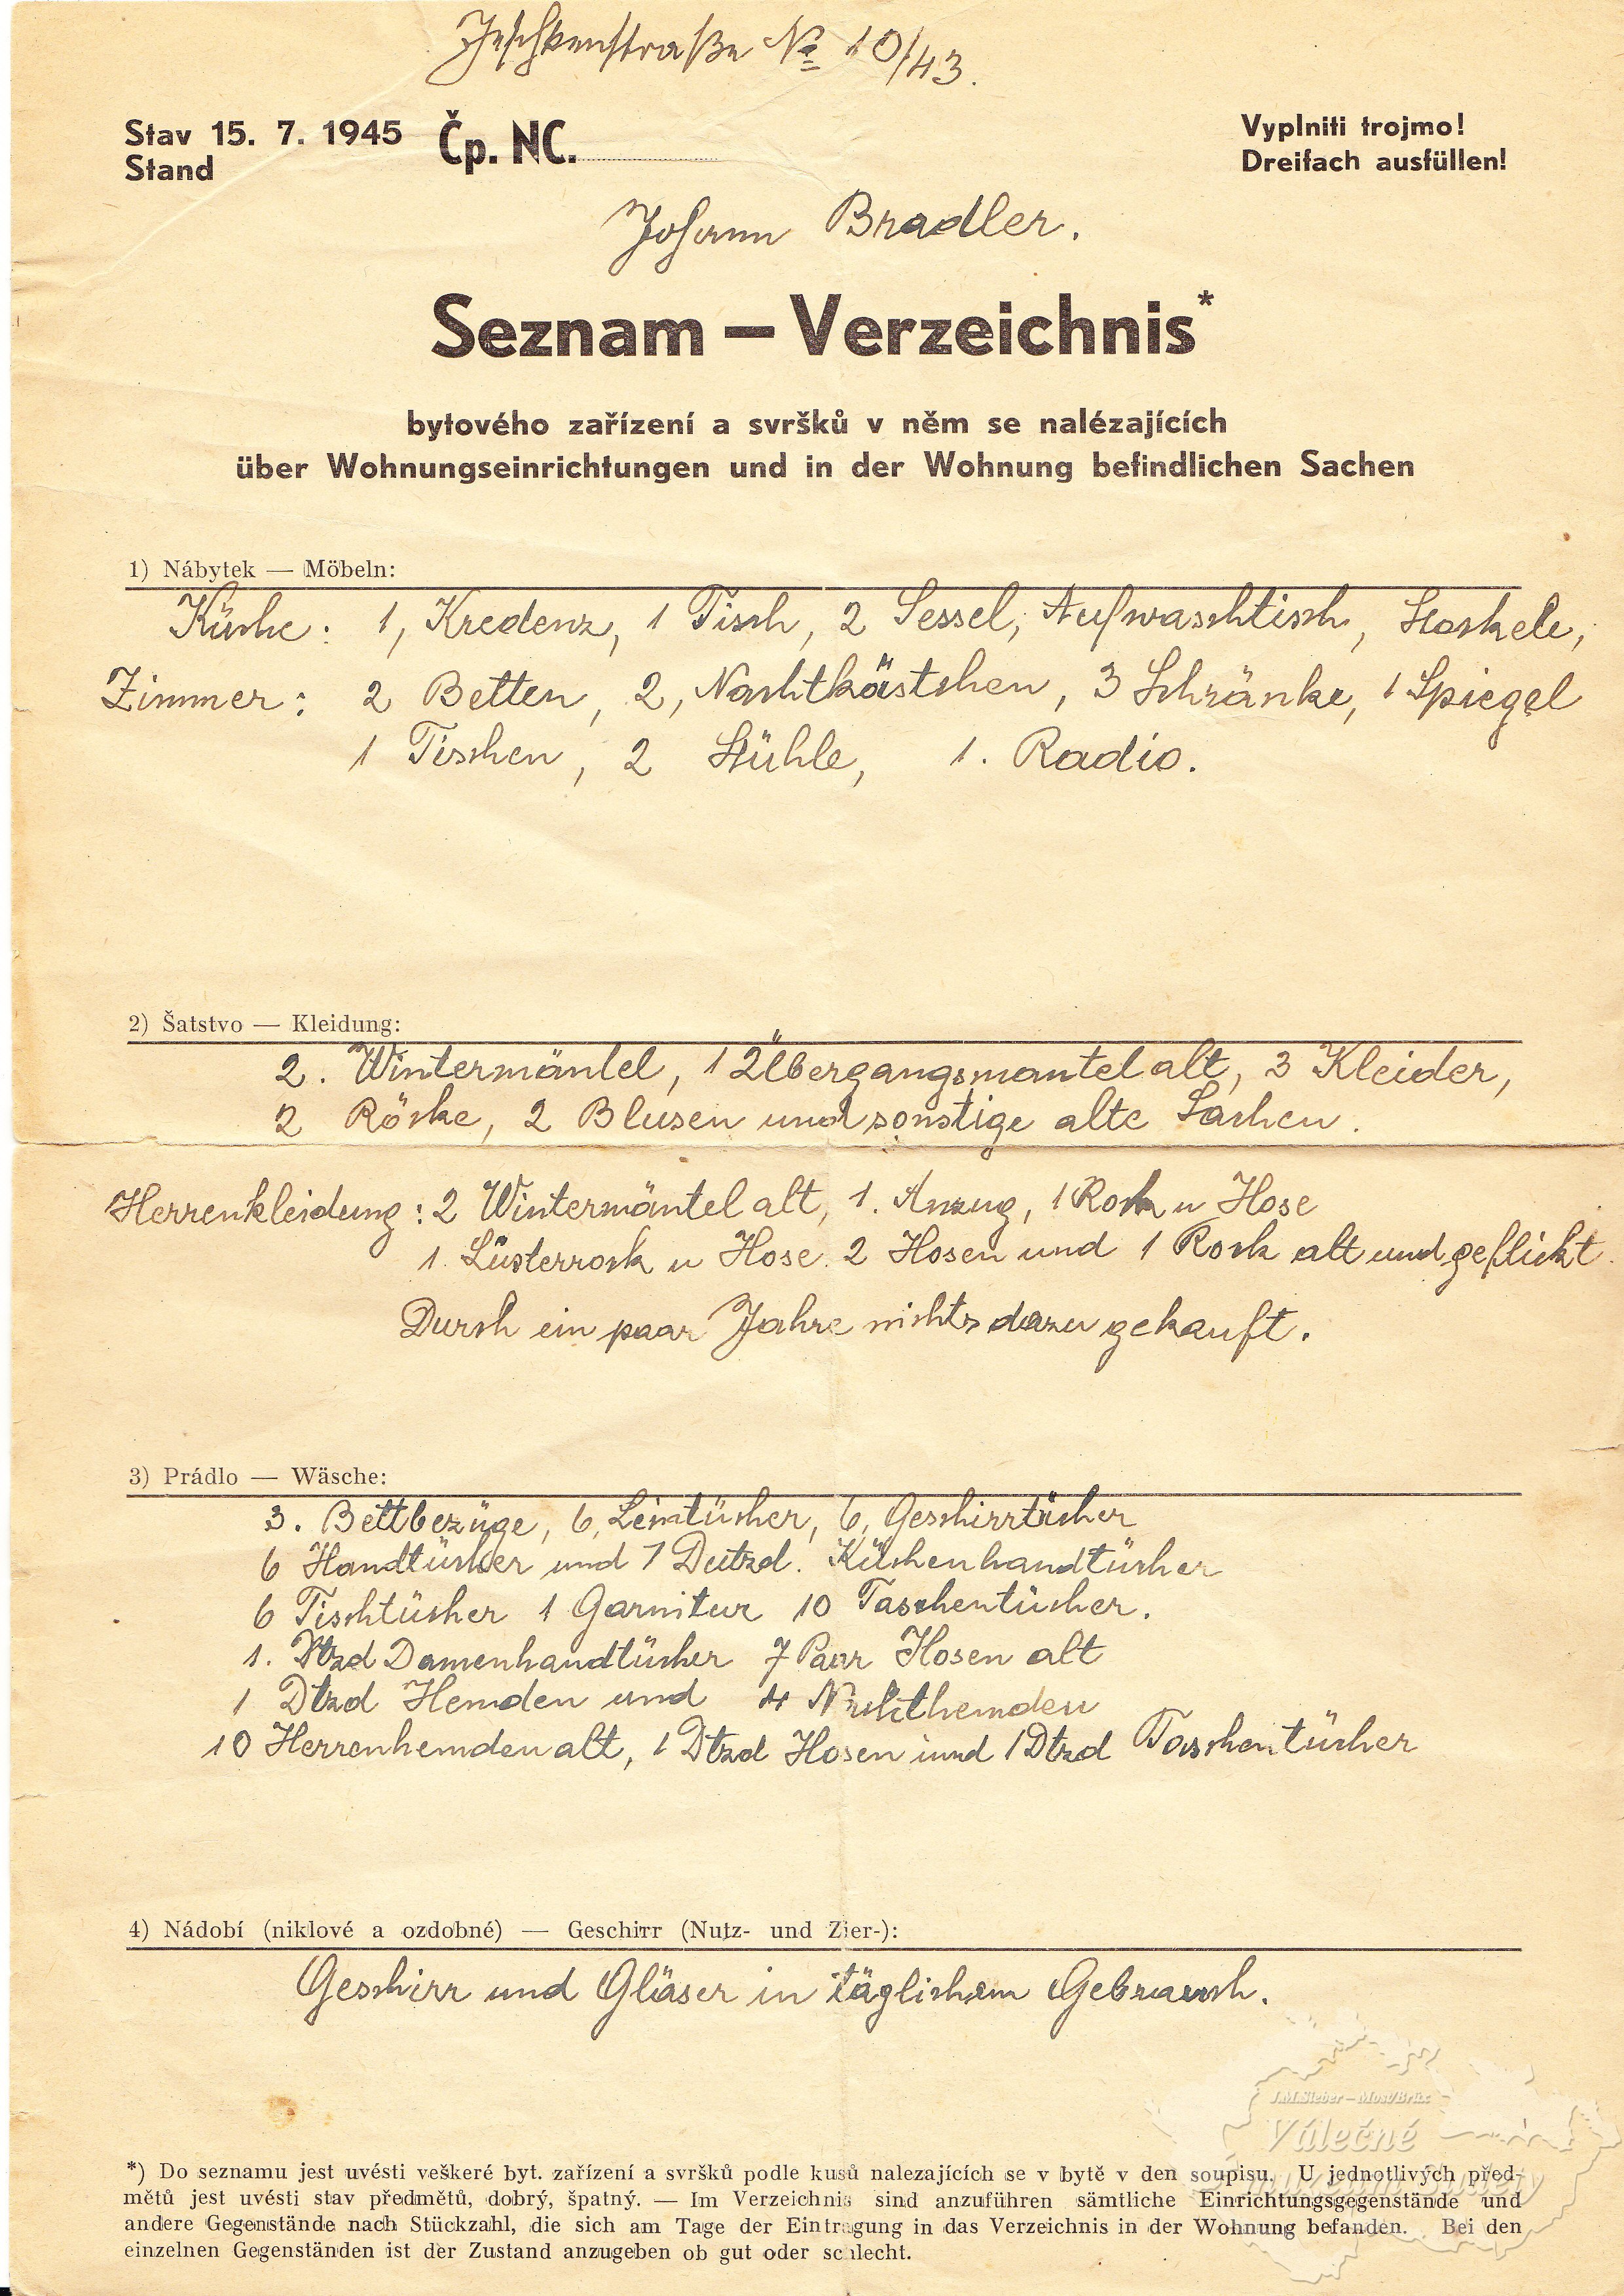 Jeschkenstraße № 10/43.
Stav 15. 7. 1945 Čp. NC.
Stand
Vyplniti trojmo!
Dreifach ausfüllen!
Johann Bradler.
Seznam — Verzeichnis*
bytového zařízení a svršků v něm se nalézajících
über Wohnungseinrichtungen und in der Wohnung befindlichen Sachen
1) Nábytek — Möbeln:
Küche: 1, Kredenz, 1 Tisch, 2 Sessel, Aufwaschtisch, Stockele,
Zimmer: 2 Betten, 2, Nachtkästchen, 3 Schränke, 1 Spiegel
1 Tischen, 2 Stühle, 1. Radio.
2) Šatstvo — Kleidung:
2. Wintermäntel, 1 Übergangsmantel alt, 3 Kleider,
2 Röcke, 2 Blusen und sonstige alte Sachen.
Herrenkleidung: 2 Wintermäntel alt, 1. Anzug, 1 Rock u Hose
1. Lüsterrock u Hose. 2 Hosen und 1 Rock alt und geflickt.
Durch ein paar Jahre nichts dazu gekauft.
3) Prádlo — Wäsche:
3. Bettbezüge, 6, Leintücher, 6, Geschirrtücher
6 Handtücher und 1 Dutzd. Küchenhandtücher
6 Tischtücher 1 Garnitur 10 Taschentücher.
1. Dtzd Damenhandtücher 7 Paar Hosen alt
1 Dtzd Hemden und 4 Nachthemden
10 Herrenhemden alt, 1 Dtzd Hosen und 1 Dtzd Taschentücher
4) Nádobí (niklové a ozdobné) — Geschirr (Nutz- und Zier-):
Geschirr und Gläser in täglichem Gebrauch.
J.M.Sieber – Most/Brüx
Válečné
Muzeum Sudety
*) Do seznamu jest uvésti veškeré byt. zařízení a svršků podle kusů nalezajících se v bytě v den soupisu. U jednotlivých před-
mětů jest uvésti stav předmětů, dobrý, špatný. — Im Verzeichnis sind anzuführen sämtliche Einrichtungsgegenstände und
andere Gegenstände nach Stückzahl, die sich am Tage der Eintragung in das Verzeichnis in der Wohnung befanden. Bei den
einzelnen Gegenständen ist der Zustand anzugeben ob gut oder schlecht.